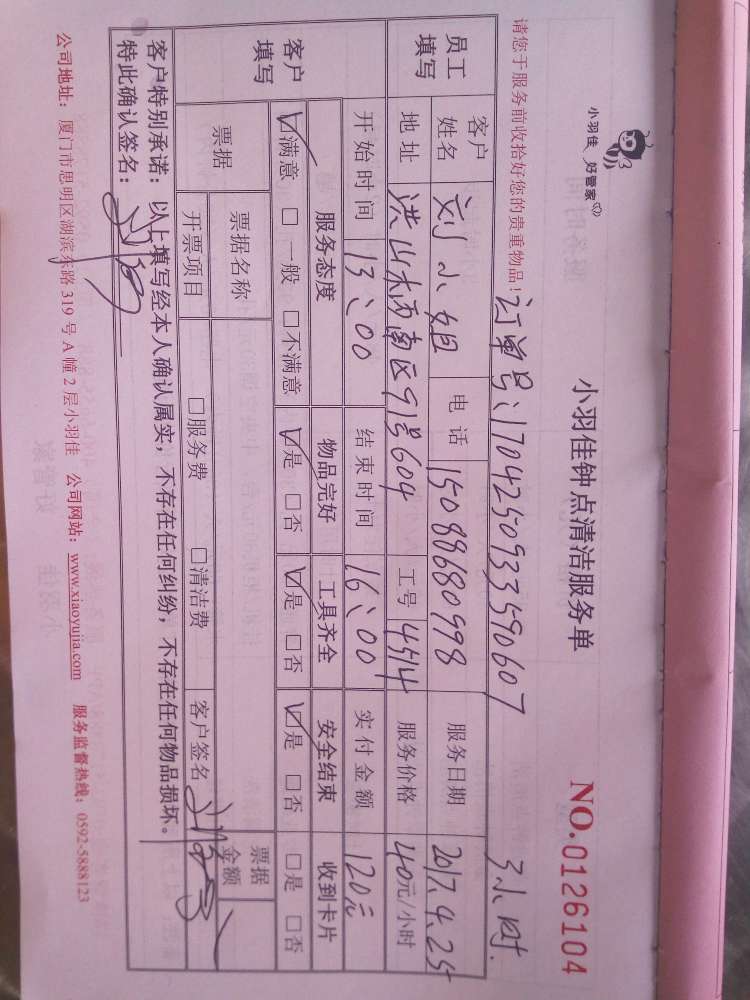 小羽佳 好管家
小羽佳钟点清洁服务单
NO.0126104
请您于服务前收拾好您的贵重物品！
订单号：1704250933590607
3小时.
员工填写
客户姓名 刘小姐 电话 15088680998 服务日期 2017.4.25
地址 洪山柄南区91号604 工号 4514 服务价格 40元/小时
开始时间 13：00 结束时间 16：00 实付金额 120元
客户填写
服务态度 物品完好 工具齐全 安全结束 收到卡片
☑满意 □一般 □不满意 ☑是 □否 ☑是 □否 ☑是 □否 □是 □否
票据 票据名称 票据金额
开票项目 □服务费 □清洁费 客户签名
客户特别承诺：以上填写经本人确认属实，不存在任何纠纷，不存在任何物品损坏。
特此确认签名：
公司地址：厦门市思明区湖滨东路319号A幢2层小羽佳 公司网站：www.xiaoyujia.com 服务监督热线：0592-5888123